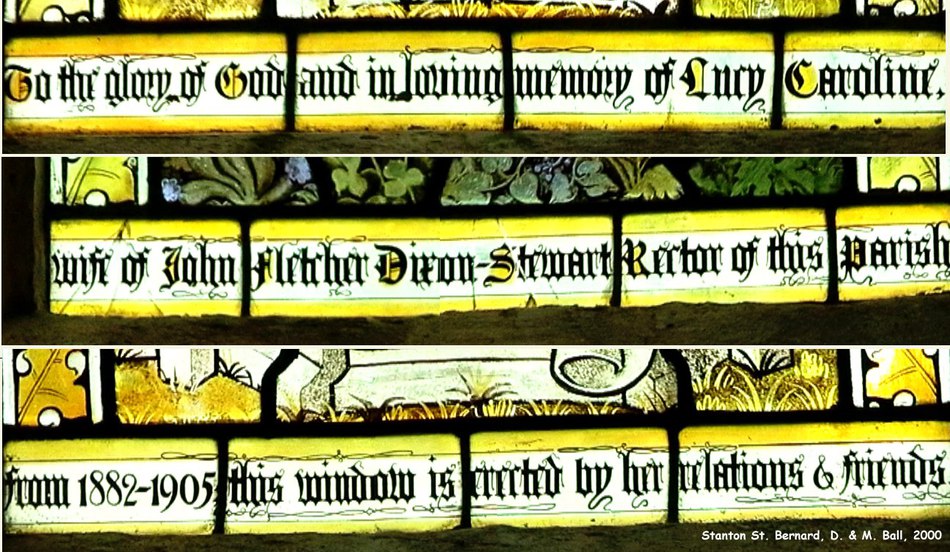 To the glory of God and in loving memory of Lucy Caroline,
wife of John Fletcher Dixon-Stewart Rector of this Parish
from 1882-1905, this window is erected by her relations & friends.
Stanton St. Bernard, D. & M. Ball, 2000